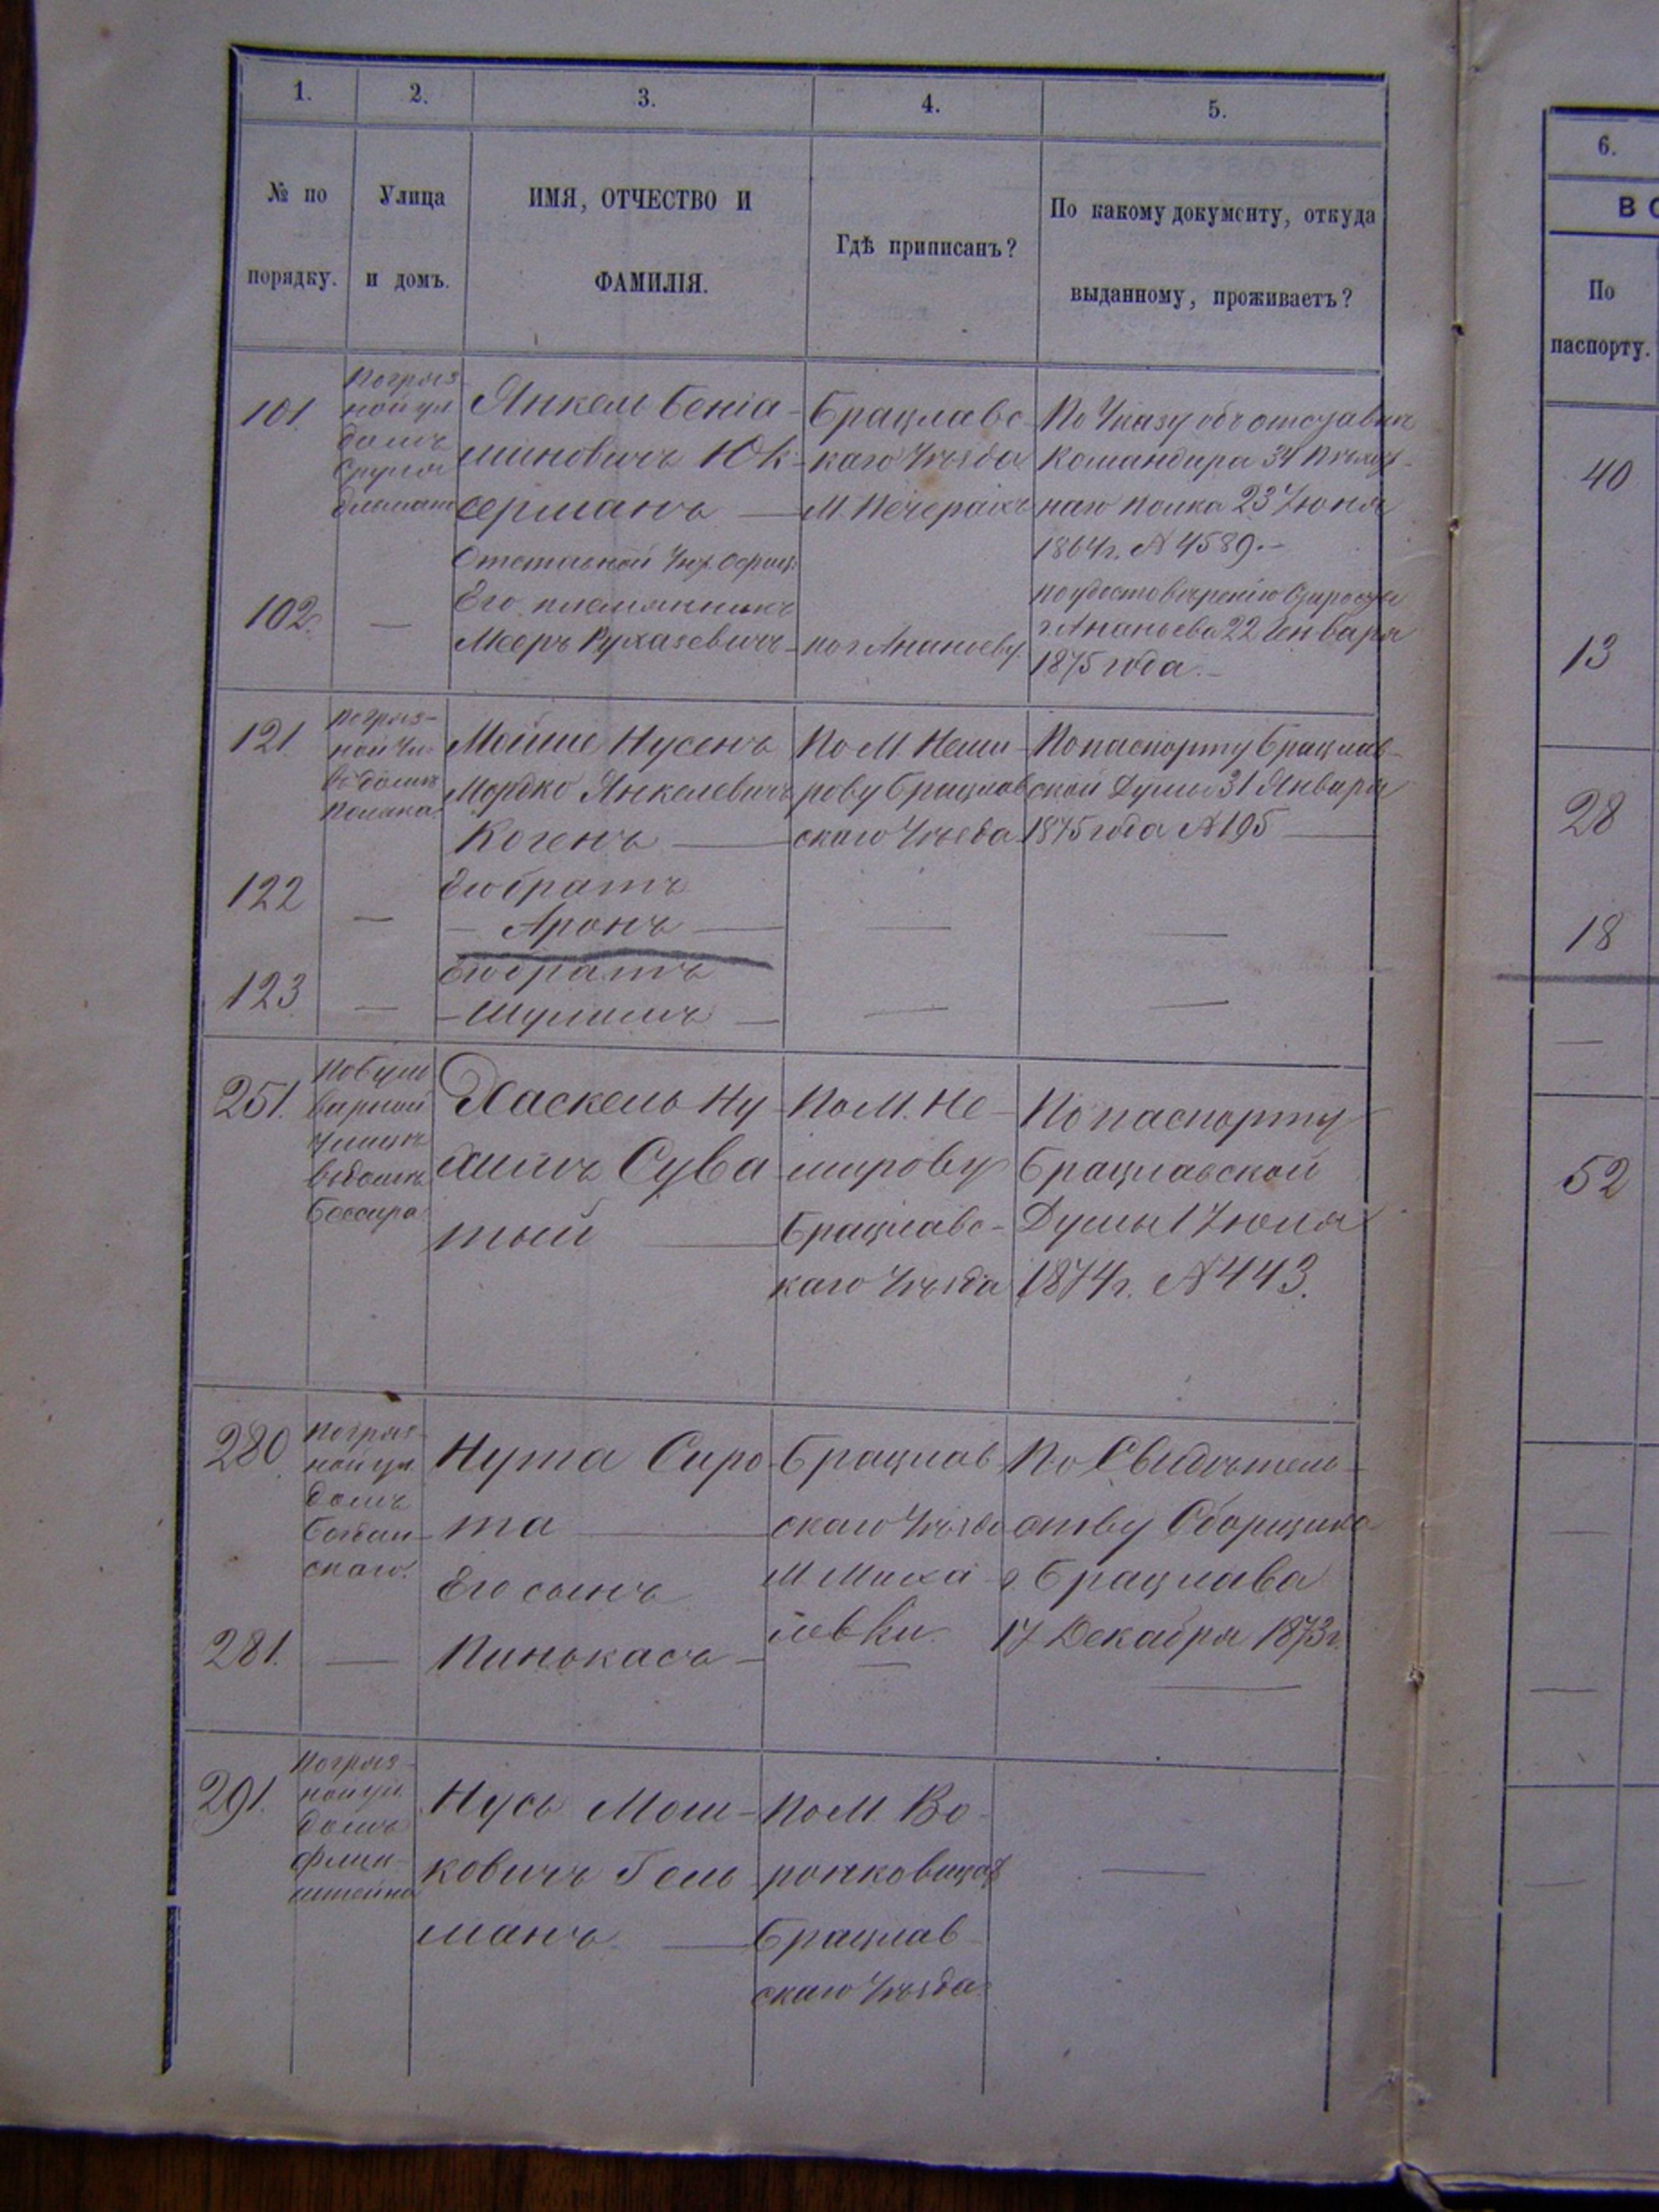 1. 2. 3. 4. 5.
№ по порядку.
Улица и домъ.
ИМЯ, ОТЧЕСТВО И ФАМИЛІЯ.
Гдѣ приписанъ?
По какому документу, откуда выданному, проживаетъ?
6.
ВО
По
паспорту.
101.
Погряз-
ной ул
домъ
Янкель Беніа-
миновичъ Юк-
серманъ
Отставной Унт. Офиц.
Брацлавс-
каго Уѣзда
М. Печерахъ
По Указу объ отставкѣ
Командира 34 Пѣхот-
наго полка 23 Іюня
1864 г. № 4589.
40
102.
—
Его племянникъ
Мееръ Рухазевичъ
по г. Ананьеву.
по удостовѣренію Старосты
г. Ананьева 22 Генваря
1875 года.
13
121.
Погряз-
ной Ул.
въ домѣ
Полака
Мойше Нусенъ
Мордко Янкелевичъ
Когенъ
По М. Неми-
рову Брацлав
скаго Уѣзда
По паспорту Брацлав-
ской Думы 31 Января
1875 года № 195
28
122
—
Его братъ
Аронъ
—
—
18
123.
—
Его братъ
Шулимъ
—
—
—
251.
По буль
варной
улицѣ
въ домѣ
Хаскель Ну
химъ Сува
тый
По М. Не-
мирову
Брацлавс-
каго Уѣзда
По паспорту
Брацлавской
Думы 1 Іюля
1874 г. № 443.
52
280.
Погряз-
ной ул.
домъ
скаго.
Нута Сиро
та
Брацлав
скаго Уѣзда
М. Миха
ловки.
По Свидѣтель-
ству Сборщика
г. Брацлава
17 Декабря 1873 г.
—
281.
—
Его сынъ
Пинькасъ
—
—
—
291.
Погряз-
ной ул.
домъ
Флин-
штейна
Нусь Мош-
ковичъ Гель
манъ
По М. Во-
ронковицы
Брацлав
скаго Уѣзда
—
—